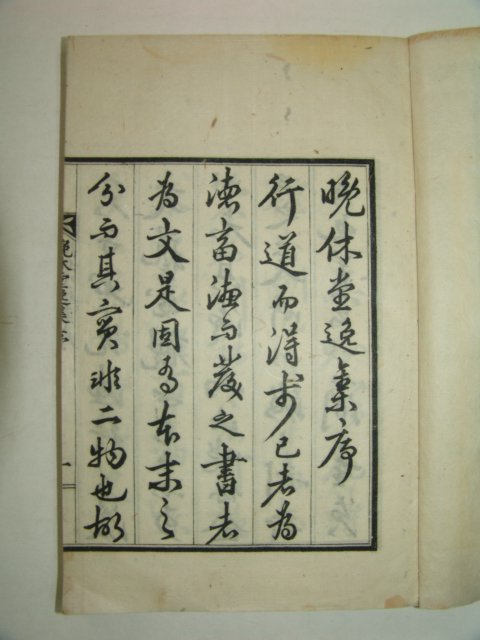 晩休堂逸集序
行道而得於己者為
德畜德而發之書者
為文是固有本末之
分而其實非二物也故
晩休堂逸集序
一